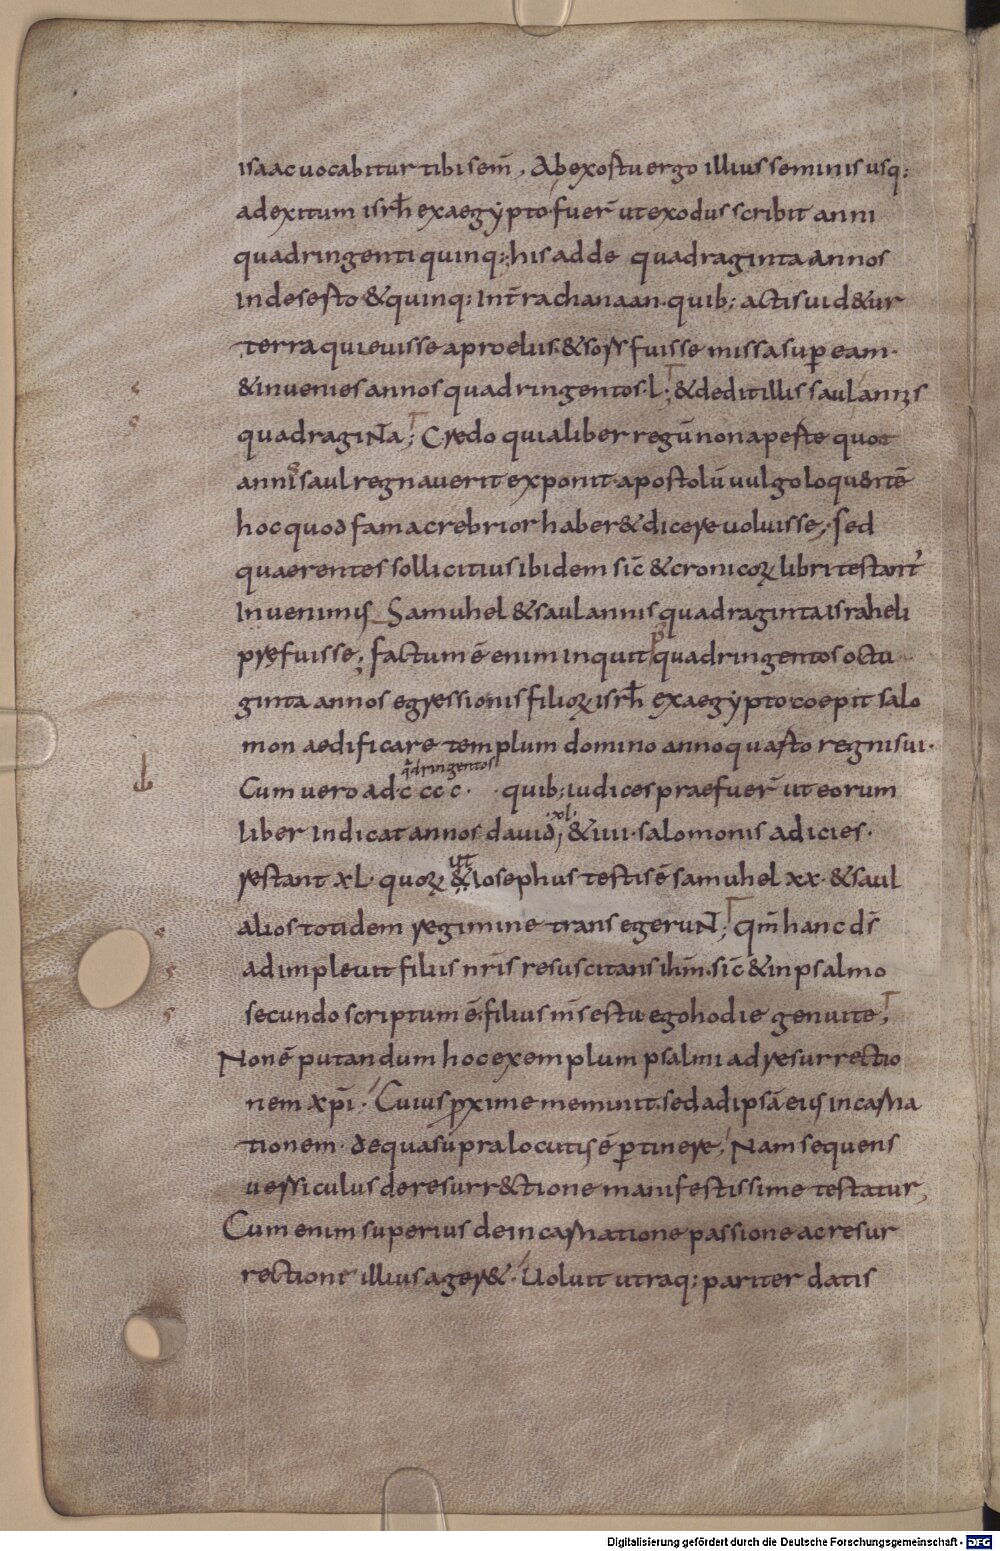 isaac uocabitur tibi sem̄, Ab exostu ergo illius seminis usq:
ad exitum isrl̄ ex aegẏpto fuer̄ ut exodus scribit anni
quadringenti quinq:; his adde quadraginta annos
in deserto & quinq: in tr̄a chanaan quib: actis uid&ur
terra quieuisse a proeliis & sors fuisse missa sup̄ eam·
& inuenies annos quadringentos·L·; & dedit illis saul annis
quadragiNta; Credo quia liber regū non aperte quot
annis saul regnauerit exponit apostolū uulgo loqu&itē
hoc quod fama crebrior haber& dicere uoluisse; sed
quaerentes sollicitius ibidem sic̄ & cronicoꝝ libri testant̄
Inuenimus Samuhel & saul annis quadraginta israheli
prefuisse; factum ē enim inquit quadringentos octu
ginta annos egressionis filioꝝ isrl̄ ex aegẏpto coepit salo
mon aedificare templum domino anno quarto regni sui·
qͣdringentos
Cum uero ad cccc· quib: iudices praefuer̄ ut eorum
·xl·
liber indicat annos dauid, & iiii· salomonis adicies·
ut
restant xL· quoꝝ & iosephus testis ē samuhel xx· & saul
alios totidem regimine transegeruNt; qm̄ hanc ds̄
adimpleuit filiis nr̄is resuscitans ihm̄· sic̄ & in psalmo
secundo scriptum ē· filius ms̄ es tu ego hodie genui te;
Non ē putandum hoc exemplum psalmi ad resurrectio
nem xp̄i· Cuius ꝓxime meminit· sed ad ipsā eius incarna
tionem· de qua supra locutus ē ꝑtinere; Nam sequens
uersiculus de resurr&ctione manifestissime testatur,
Cum enim superius de incarnatione passione ac resur
rectione illius ager&· Uoluit utraq: pariter datis
Digitalisierung gefördert durch die Deutsche Forschungsgemeinschaft - DFG